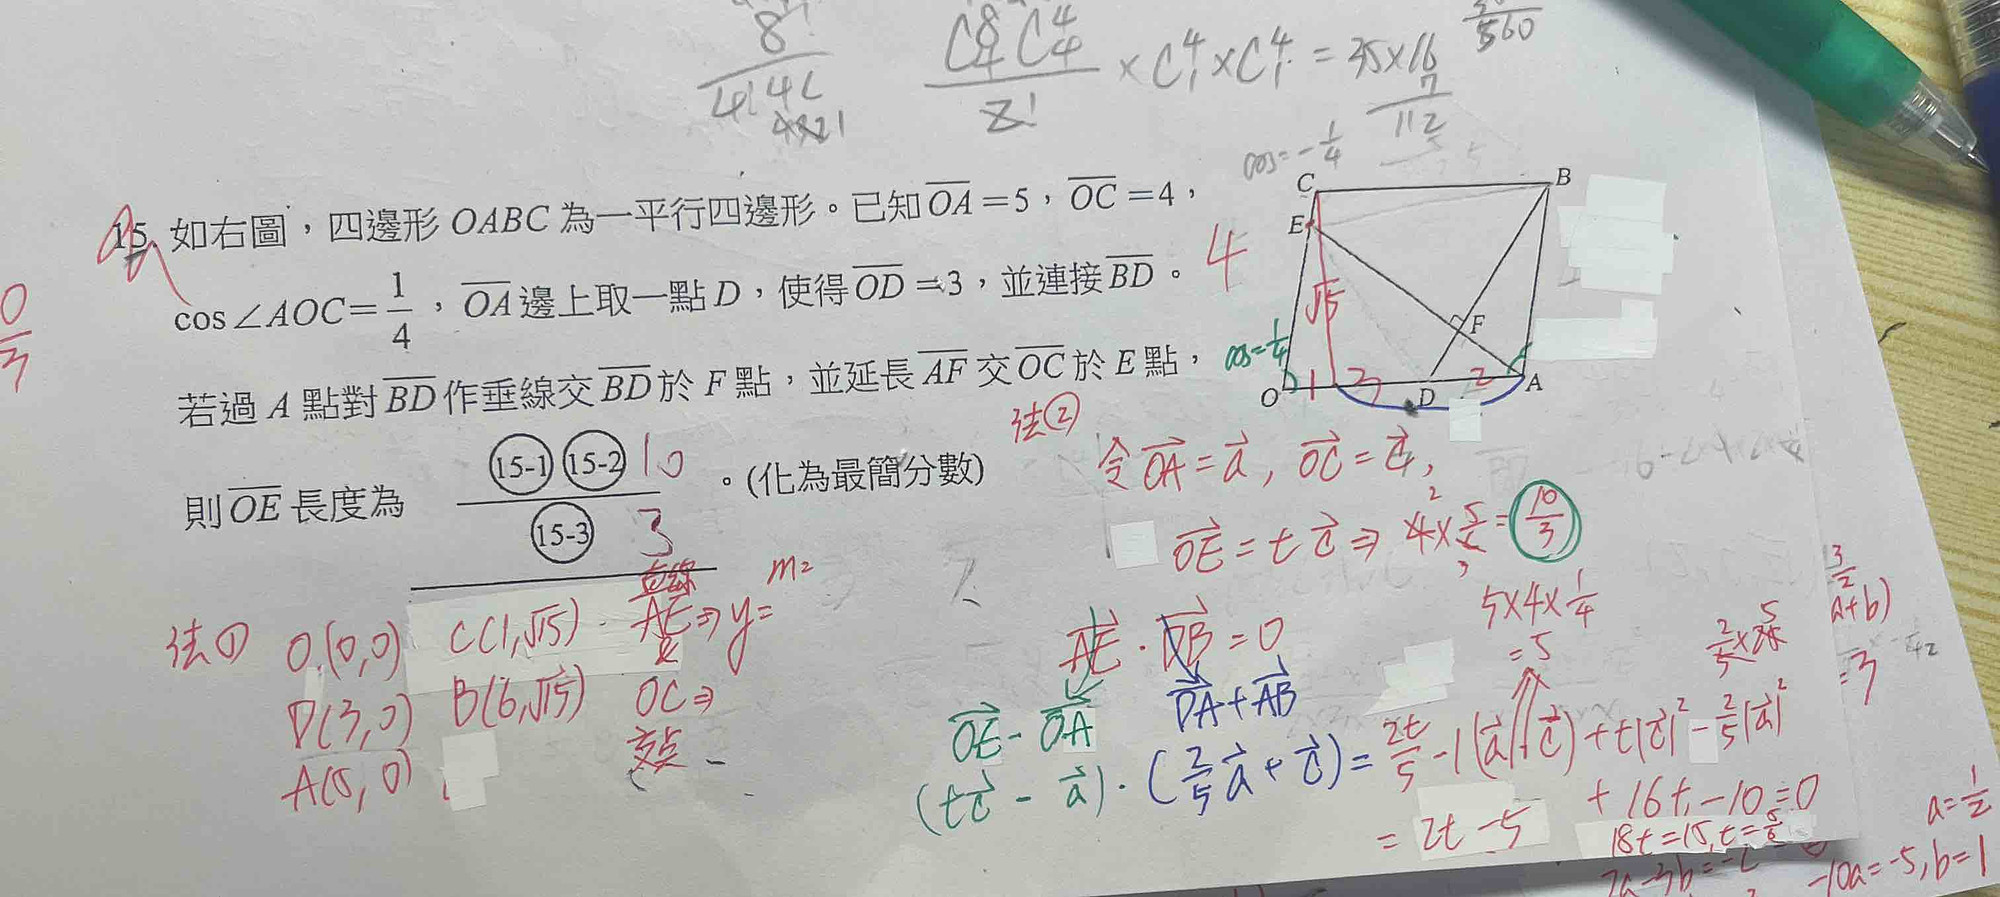 8!
4!4!
C⁸₄C⁴₄ / 2! × C⁴₁ × C⁴₁ = 35×16
560
7
112
cos = -1/4
15. 如右圖，四邊形 OABC 為一平行四邊形。已知 OA = 5，OC = 4，
cos∠AOC = 1/4，OA 邊上取一點 D，使得 OD = 3，並連接 BD。
若過 A 點對 BD 作垂線交 BD 於 F 點，並延長 AF 交 OC 於 E 點，
則 OE 長度為 (15-1)(15-2) / (15-3) 。(化為最簡分數)
10
3
0/3
C B
E
F
O D A
4 √15
cos = 1/4
1 3 2
法①
O(0,0) C(1,√15)
D(3,0) B(6,√15)
A(5,0)
直線
AE ⇒ y =
m=
OC ⇒
交点
法②
令 OA = a, OC = c,
OE = tc ⇒ 4 × 5/6 = 10/3
2
3
5×4×1/4
= 5
AE · DB = 0
OE - OA DA + AB
(tc - a) · (2/5 a + c) = 2t/5 - 1(a · c) + t|c|² - 2/5|a|²
= 2t - 5 + 16t - 10 = 0
18t = 15, t = 5/6
3/2
a+b)
= 3
a = 1/2
-10a = -5, b = 1